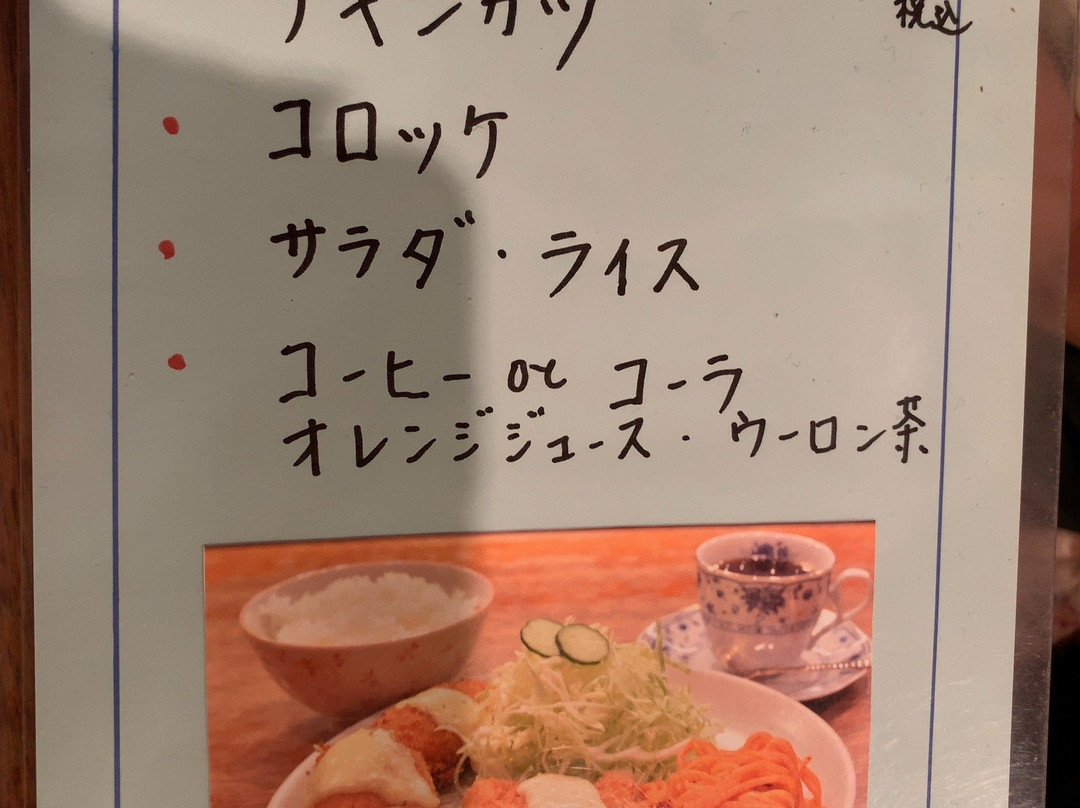 チキンカツ
税込
コロッケ
サラダ・ライス
コーヒー or コーラ
オレンジジュース・ウーロン茶